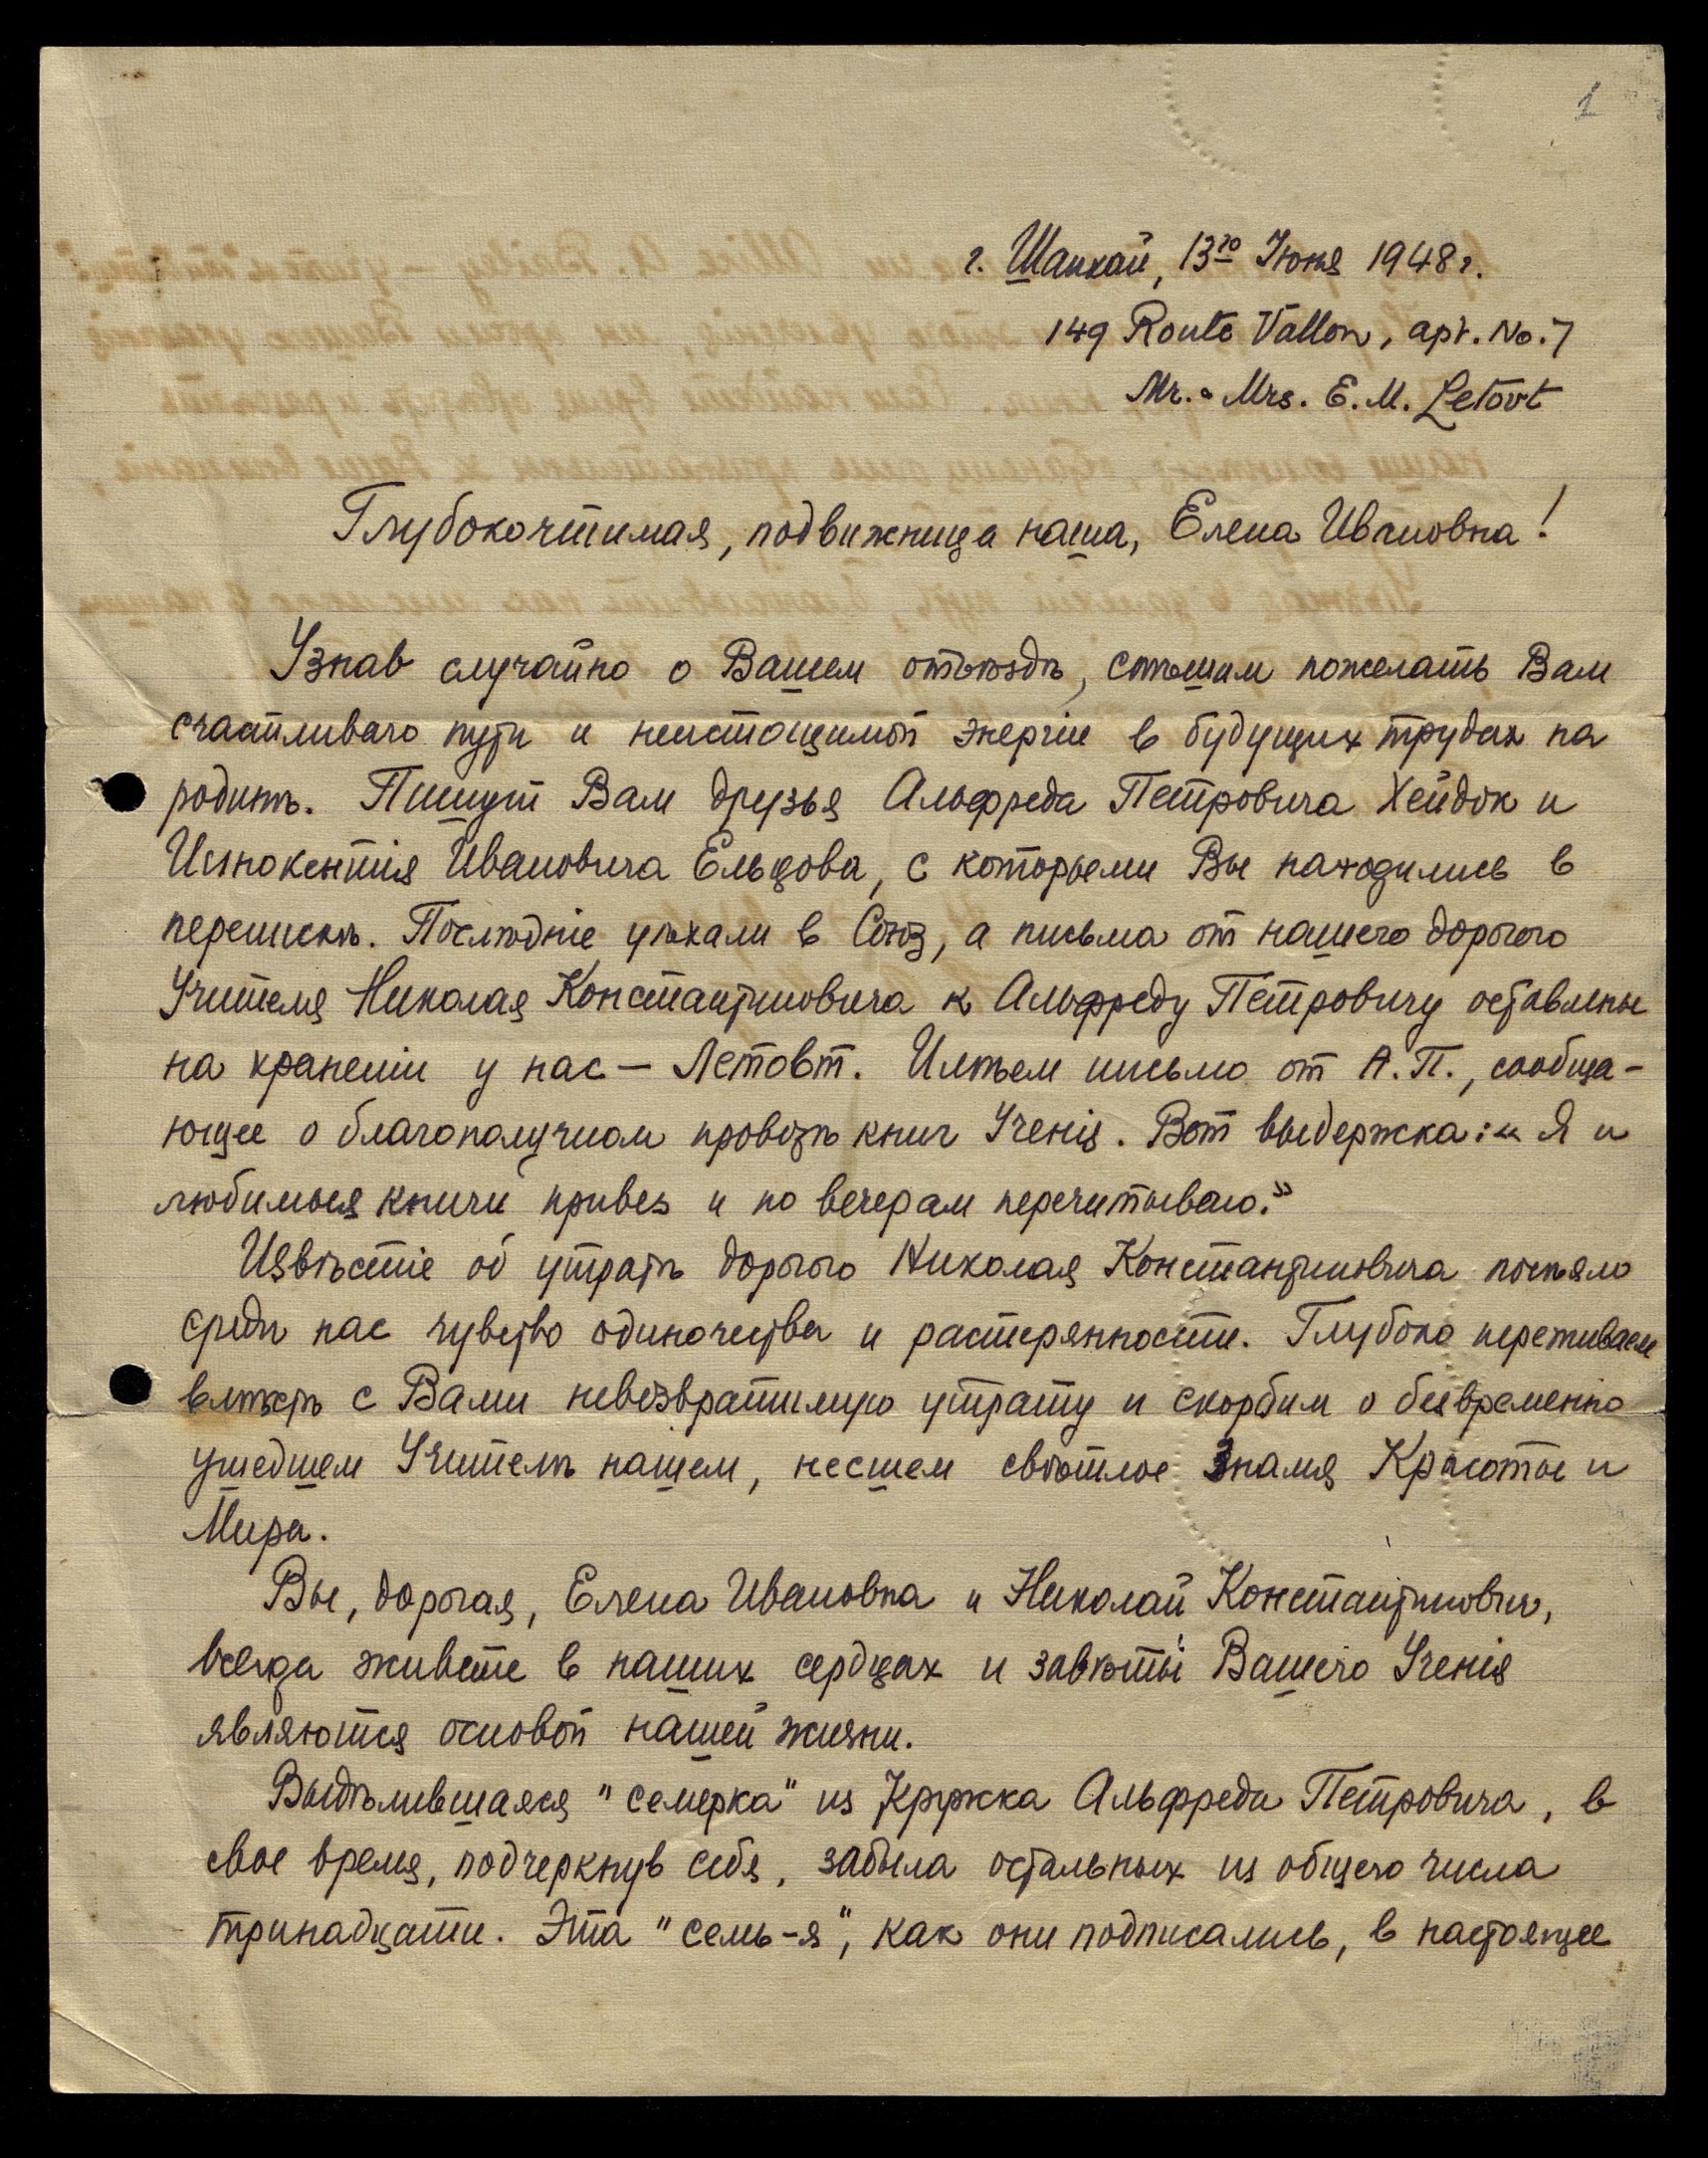 1
г. Шанхай, 13го Июня 1948 г.
149 Route Vallon, apt. No. 7
Mr. & Mrs. E. M. Letovt
Глубокочтимая, подвижница наша, Елена Ивановна!
Узнав случайно о Вашем отъѣздѣ, спѣшим пожелать Вам
счастливаго пути и неистощимой энергіи в будущих трудах на
родинѣ. Пишут Вам друзья Альфреда Петровича Хейдок и
Иннокентія Ивановича Ельцова, с которыми Вы находились в
перепискѣ. Послѣдніе уѣхали в Союз, а письма от нашего дорогого
Учителя Николая Константиновича к Альфреду Петровичу оставлены
на храненіи у нас — Летовт. Имѣем письмо от А.П., сообща-
ющее о благополучном провозѣ книг Ученія. Вот выдержка: « Я и
любимыя книги привез и по вечерам перечитываю.»
Извѣстіе об утратѣ дорогого Николая Константиновича посѣяло
среди нас чувство одиночества и растерянности. Глубоко переживаем
вмѣстѣ с Вами невозвратимую утрату и скорбим о безвременно
ушедшем Учителѣ нашем, несшем свѣтлое Знамя Красоты и
Мира.
Вы, дорогая, Елена Ивановна и Николай Константинович,
всегда живете в наших сердцах и завѣты Вашего Ученія
являются основой нашей жизни.
Выдѣлившаяся "семерка" из Кружка Альфреда Петровича, в
свое время, подчеркнув себя, забыла остальных из общего числа
тринадцати. Эта "семь-я", как они подписались, в настоящее